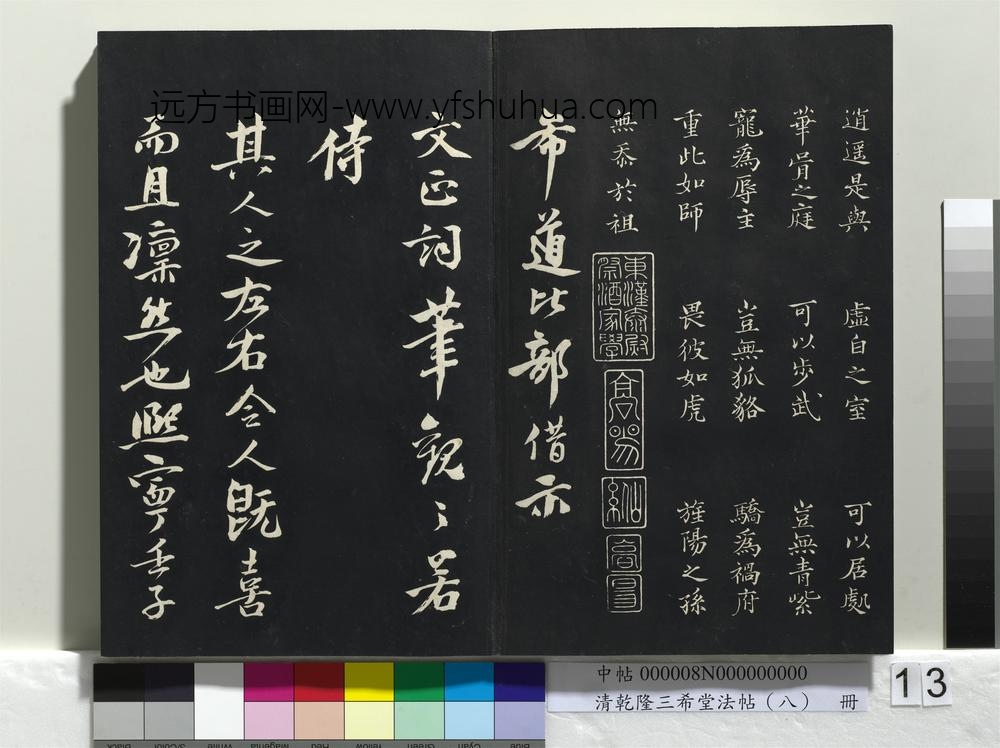 逍遥是與 虛白之室 可以居處
華胥之庭 可以步武 豈無青紫
寵為辱主 豈無狐貉 驕為禍府
重此如師 畏彼如虎 旌陽之孫
無忝於祖
東漢太尉
祭酒家學
高陽
希道比部借示
文正詞筆觀〻若
侍
其人之左右令人既喜
而且凜然也熙寧壬子
远方书画网-www.yfshuhua.com
中帖 000008N000000000
清乾隆三希堂法帖（八） 冊
13
Black
3/Color
White
Magenta
Red
Yellow
Green
Cyan
Blue